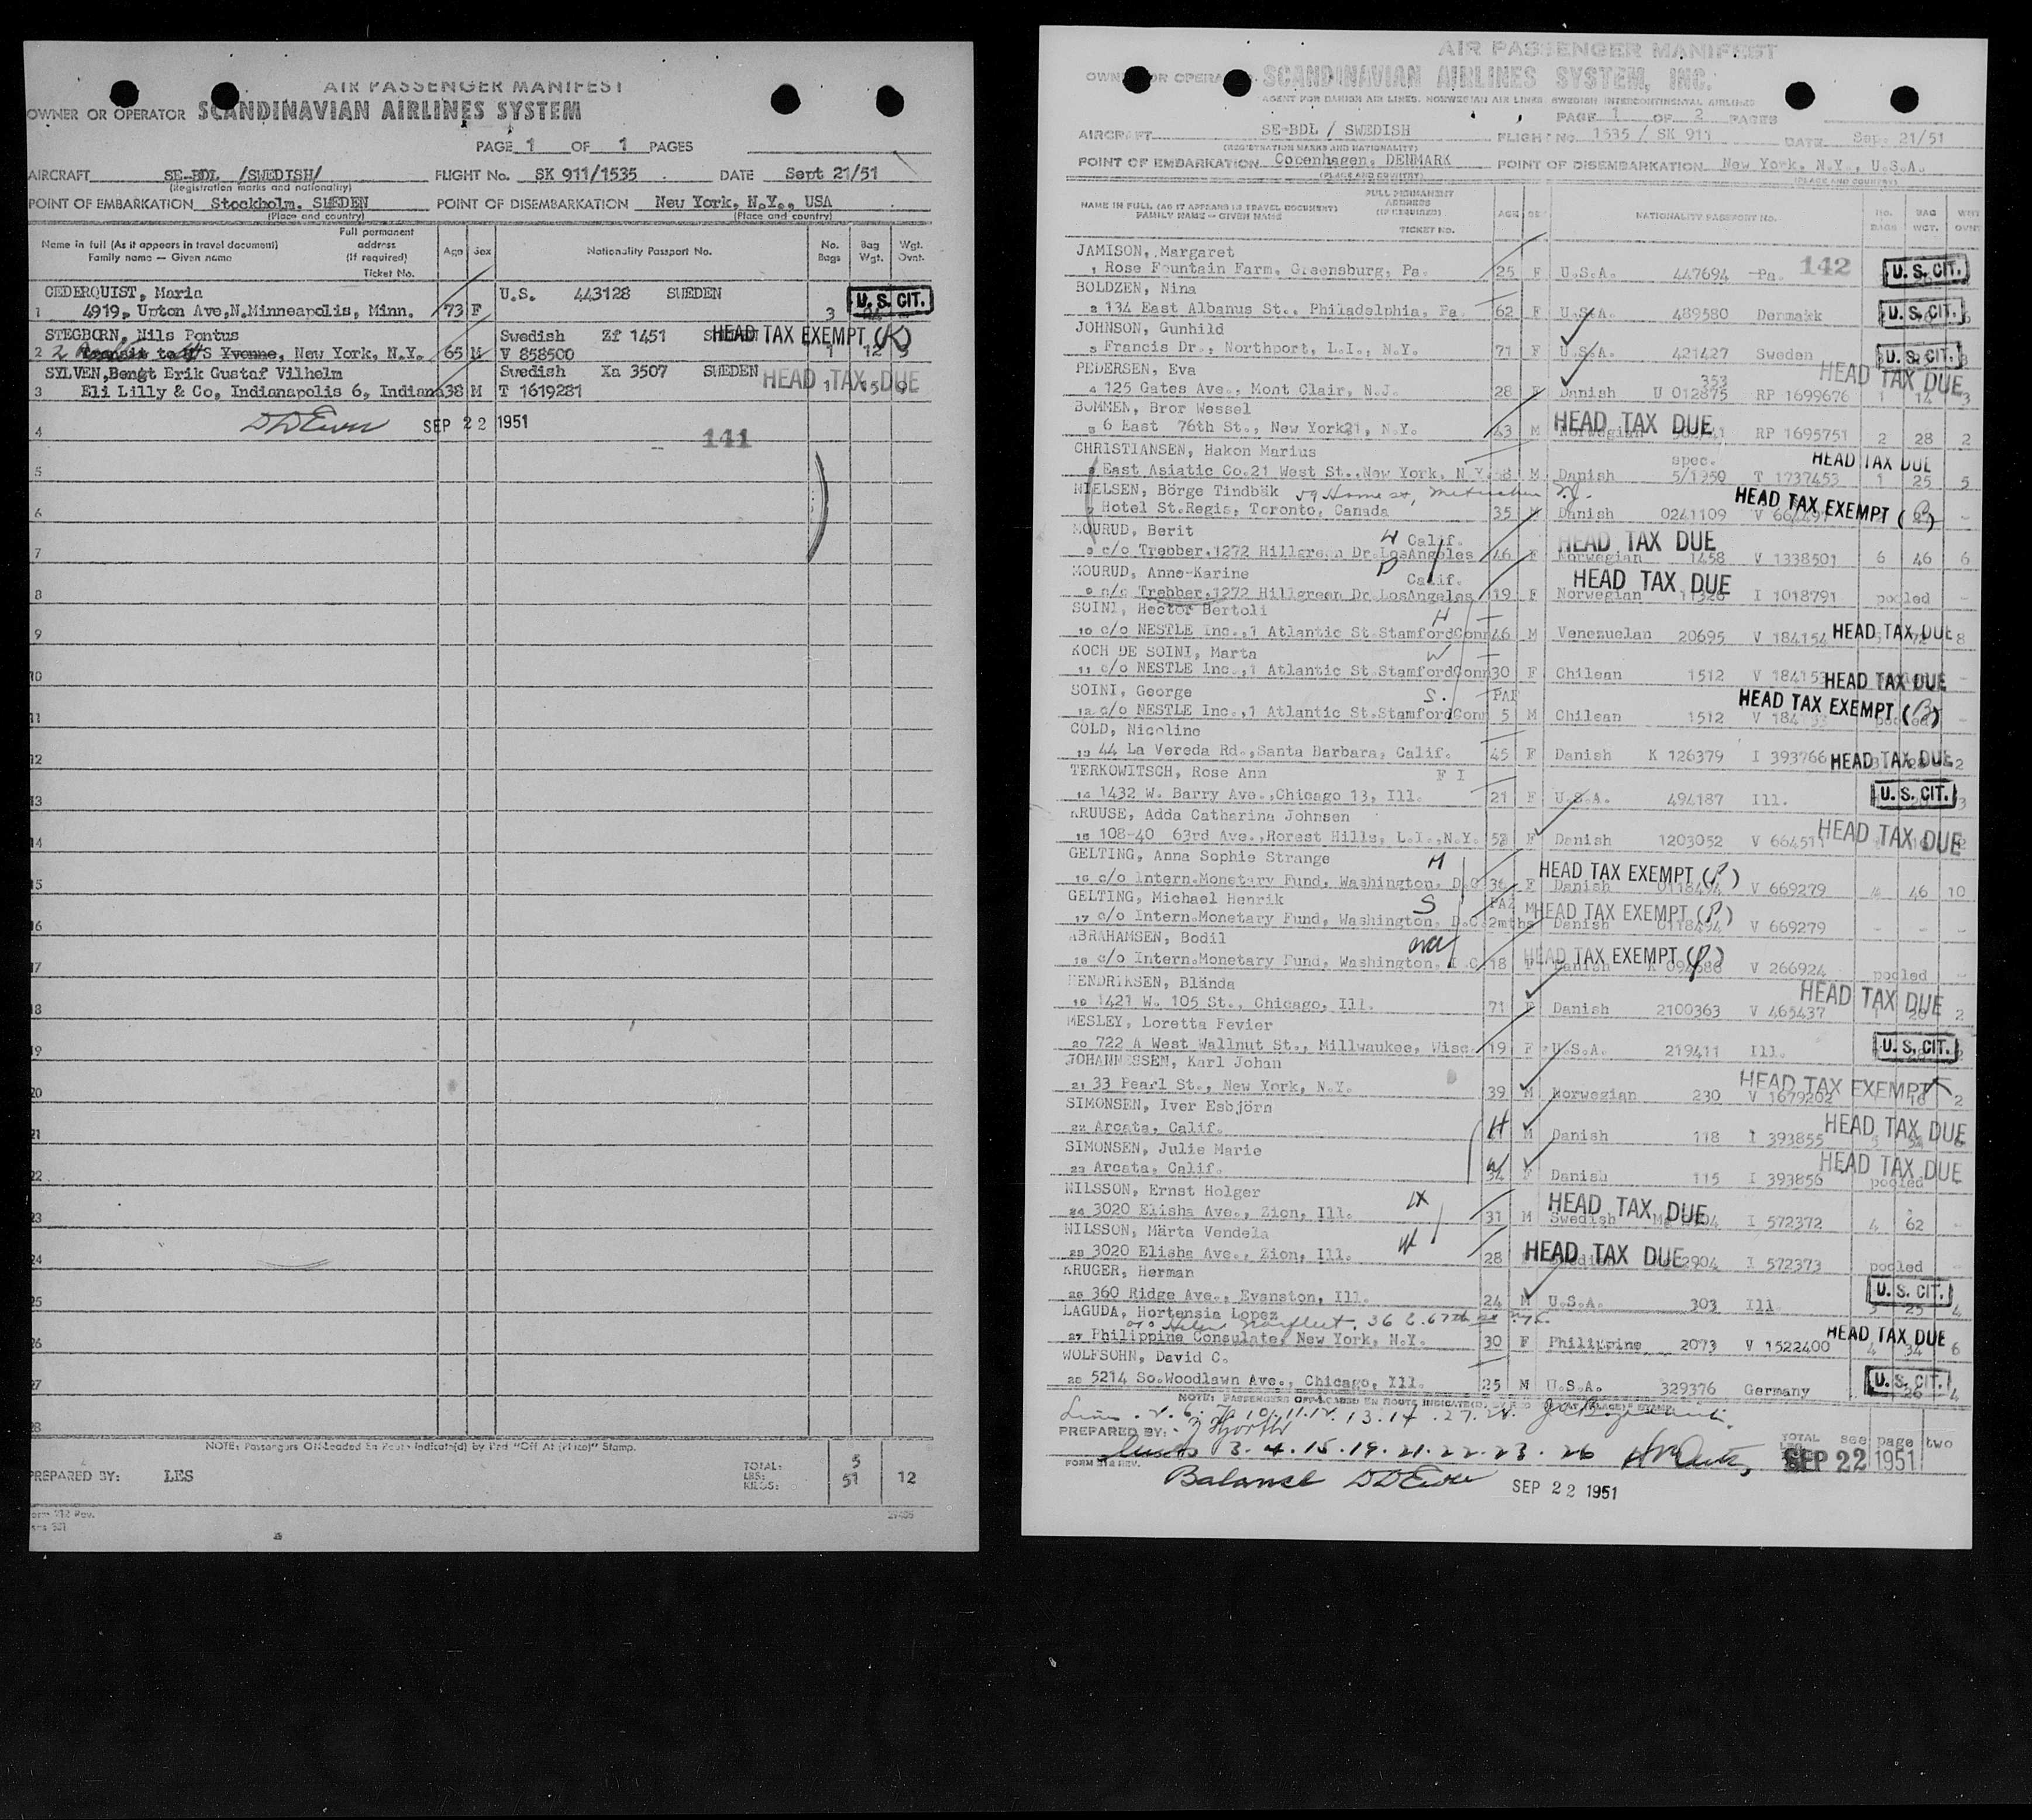 AIR PASSENGER MANIFEST
OWNER OR OPERATOR SCANDINAVIAN AIRLINES SYSTEM
PAGE 1 OF 1 PAGES
AIRCRAFT SE-BDL /SWEDISH/ FLIGHT No. SK 911/1535 DATE Sept 21/51
(Registration marks and nationality)
POINT OF EMBARKATION Stockholm, SWEDEN POINT OF DISEMBARKATION New York, N.Y., USA
(Place and country) (Place and country)
Name in full (As it appears in travel document) Full permanent address (if required) Age Sex Nationality Passport No. No. Bags Bag Wgt. Wgt. Ovnt.
Family name — Given name Ticket No.
CEDERQUIST, Maria U.S. 443128 SWEDEN
1 4919, Upton Ave,N.Minneapolis, Minn. 73 F 3 U.S. CIT.
STEGBORN, Nils Pontus Swedish Zf 1451 HEAD TAX EXEMPT (K)
2 Transit to M/S Yvonne, New York, N.Y. 65 M V 858500 1 12 3
SYLVEN,Bengt Erik Gustaf Vilhelm Swedish Xa 3507 SWEDEN HEAD TAX DUE
3 Eli Lilly & Co, Indianapolis 6, Indiana 38 M T 1619281 1 15 9
4 SEP 22 1951
141
5
6
7
8
9
10
11
12
13
14
15
16
17
18
19
20
21
22
23
24
25
26
27
28
NOTE: Passengers Off-Loaded En Route Indicate(d) by Red "Off At (Place)" Stamp.
PREPARED BY: LES TOTAL: 5
LBS:
KILOS: 51 12
Form 212 Rev.
AIR PASSENGER MANIFEST
OWNER OR OPERATOR SCANDINAVIAN AIRLINES SYSTEM, INC.
AGENT FOR DANISH AIR LINES, NORWEGIAN AIR LINES, SWEDISH INTERCONTINENTAL AIRLINES
PAGE 1 OF 2 PAGES
AIRCRAFT SE-BDL / SWEDISH FLIGHT No. 1535 / SK 911 DATE Sep. 21/51
(REGISTRATION MARKS AND NATIONALITY)
POINT OF EMBARKATION Copenhagen, DENMARK POINT OF DISEMBARKATION New York, N.Y., U.S.A.
(PLACE AND COUNTRY) (PLACE AND COUNTRY)
NAME IN FULL (AS IT APPEARS IN TRAVEL DOCUMENT) FULL PERMANENT ADDRESS (IF REQUIRED) AGE NATIONALITY PASSPORT NO. NO. BAGS BAG WGT. WGT. OVNT.
FAMILY NAME — GIVEN NAME TICKET NO.
JAMISON, Margaret 142
1 Rose Fountain Farm, Greensburg, Pa. 25 F U.S.A. 447694 Pa. U.S. CIT.
BOLDZEN, Nina
2 134 East Albanus St., Philadelphia, Pa. 62 F U.S.A. 489580 Denmakk U.S. CIT.
JOHNSON, Gunhild
3 Francis Dr., Northport, L.I., N.Y. 71 F U.S.A. 421427 Sweden U.S. CIT.
PEDERSEN, Eva 353 HEAD TAX DUE
4 125 Gates Ave., Mont Clair, N.J. 28 F Danish U 012875 RP 1699676 1 14 3
BOMMEN, Bror Wessel HEAD TAX DUE
5 6 East 76th St., New York21, N.Y. 43 M Norwegian RP 1695751 2 28 2
CHRISTIANSEN, Hakon Marius spec. HEAD TAX DUE
6 East Asiatic Co.21 West St.,New York, N.Y. 58 M Danish 5/1950 T 1737453 1 25 5
NIELSEN, Börge Tindbäk 59 Home st, Metuchen N.J. HEAD TAX EXEMPT (B)
7 Hotel St.Regis, Toronto, Canada 35 M Danish 0241109
MOURUD, Berit W Calif. HEAD TAX DUE
8 c/o Trebber,1272 Hillgreen Dr.LosAngeles 46 F Norwegian 1458 V 1338501 6 46 6
MOURUD, Anne-Karine D Calif. HEAD TAX DUE
9 c/o Trebber,1272 Hillgreen Dr.LosAngeles 19 F Norwegian 11326 I 1018791 pooled -
SOINI, Hector Bertoli H
10 c/o NESTLE Inc.,1 Atlantic St.StamfordConn 46 M Venezuelan 20695 V 184154 HEAD TAX DUE 8
KOCH DE SOINI, Marta W
11 c/o NESTLE Inc.,1 Atlantic St.StamfordConn 30 F Chilean 1512 V 184153 HEAD TAX DUE -
SOINI, George S. HEAD TAX EXEMPT (B)
12 c/o NESTLE Inc.,1 Atlantic St.StamfordConn 5 M Chilean 1512 pooled -
COLD, Nicoline
13 44 La Vereda Rd.,Santa Barbara, Calif. 45 F Danish K 126379 I 393766 HEAD TAX DUE 2
TERKOWITSCH, Rose Ann F I
14 1432 W. Barry Ave.,Chicago 13, Ill. 21 F U.S.A. 494187 Ill. U.S. CIT. 3
KRUUSE, Adda Catharina Johnsen HEAD TAX DUE
15 108-40 63rd Ave.,Rorest Hills, L.I.,N.Y. 53 F Danish 1203052 V 664511
GELTING, Anna Sophie Strange M HEAD TAX EXEMPT (P)
16 c/o Intern.Monetary Fund, Washington, D.C 34 F Danish 0118494 V 669279 4 46 10
GELTING, Michael Henrik S HEAD TAX EXEMPT (P)
17 c/o Intern.Monetary Fund, Washington, D.C. 2mths M Danish 0118494 V 669279 - - -
ABRAHAMSEN, Bodil HEAD TAX EXEMPT (P)
18 c/o Intern.Monetary Fund, Washington, D.C 18 F Danish V 266924 pooled -
HENDRIKSEN, Blända HEAD TAX DUE
19 1421 W. 105 St., Chicago, Ill. 71 F Danish 2100363 V 465437 1 20 2
MESLEY, Loretta Fevier
20 722 A West Wallnut St., Millwaukee, Wisc. 19 F U.S.A. 219411 Ill. U.S. CIT.
JOHANNESSEN, Karl Johan HEAD TAX EXEMPT
21 33 Pearl St., New York, N.Y. 39 M Norwegian 230 V 1679202 1 16 2
SIMONSEN, Iver Esbjörn HEAD TAX DUE
22 Arcata, Calif. H M Danish 118 I 393855
SIMONSEN, Julie Marie HEAD TAX DUE
23 Arcata, Calif. W 34 F Danish 115 I 393856 pooled
NILSSON, Ernst Holger HEAD TAX DUE
24 3020 Elisha Ave., Zion, Ill. 31 M Swedish I 572372 4 62 -
NILSSON, Märta Vendela W
25 3020 Elisha Ave., Zion, Ill. 28 HEAD TAX DUE 2904 I 572373 pooled -
KRUGER, Herman
26 360 Ridge Ave., Evanston, Ill. 24 M U.S.A. 303 Ill. U.S. CIT. 3 25 4
LAGUDA, Hortensia Lopez
c/o Helen Norfleet, 36 E. 67th St. N.Y.C.
27 Philippine Consulate, New York, N.Y. 30 F Philippine 2073 V 1522400 HEAD TAX DUE 4 34 6
WOLFSOHN, David C.
28 5214 So.Woodlawn Ave., Chicago, Ill. 25 M U.S.A. 329376 Germany U.S. CIT. 26 4
NOTE: PASSENGERS OFF-LOADED EN ROUTE INDICATE(D) BY RED "OFF AT (PLACE)" STAMP.
Lines . 2. 6. 7. 10. 11. 12. 13. 14 . 27. 28.
PREPARED BY:
Lines 3. 4. 15. 19. 21. 22. 23. 26
TOTAL see page two
FORM 212 REV. SEP 22 1951
Balance
SEP 22 1951